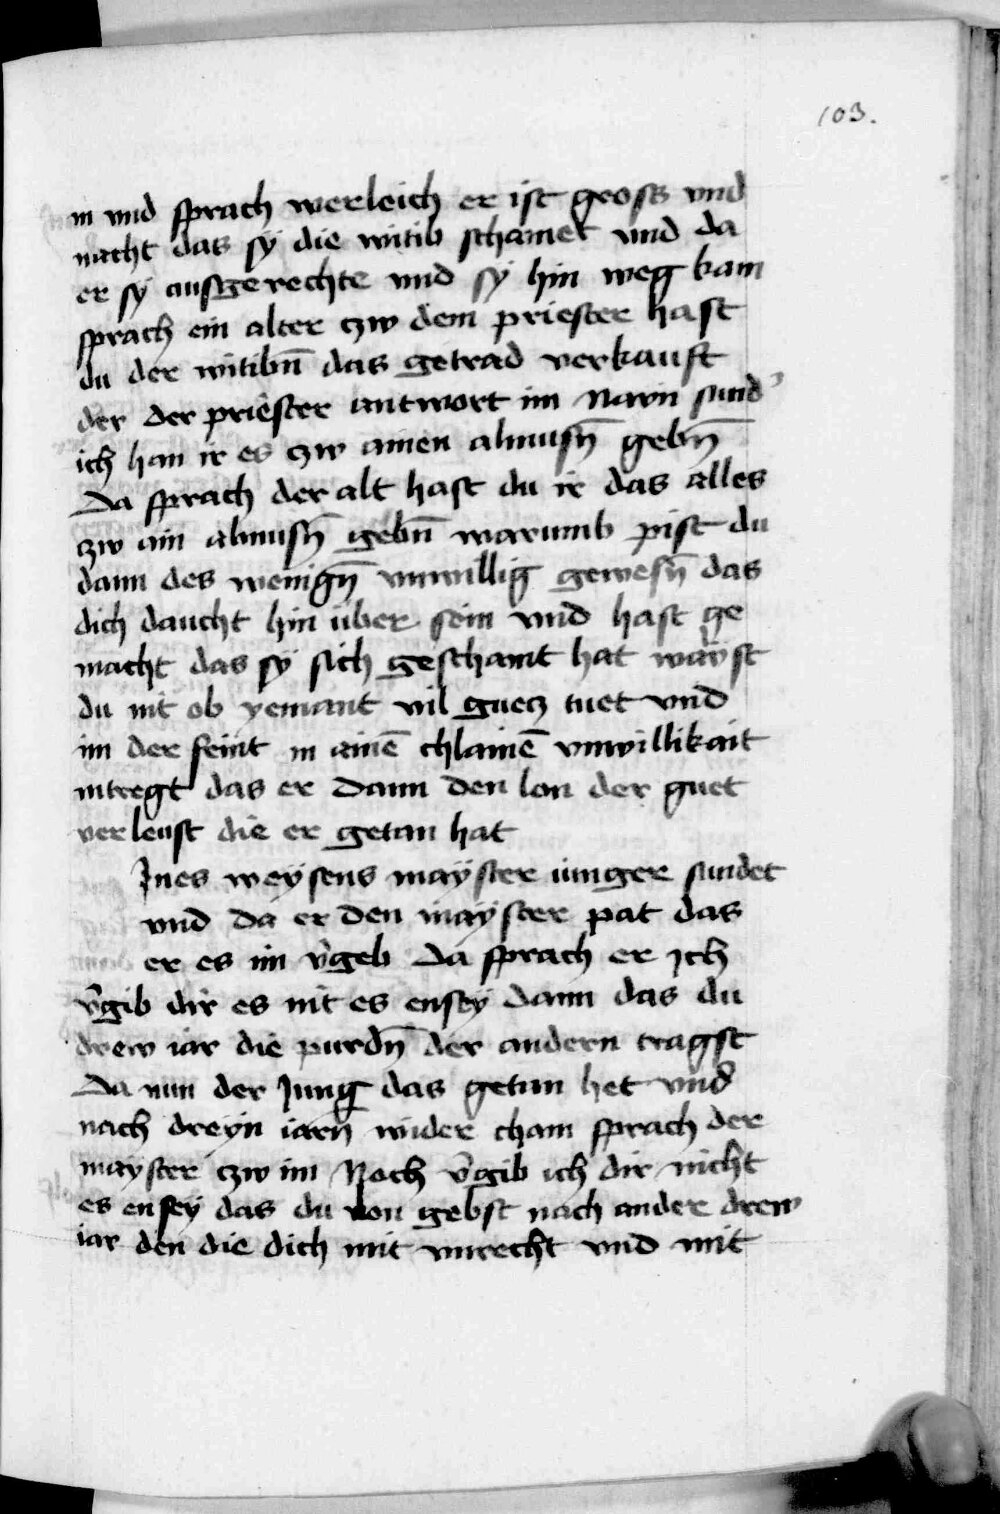 103.
in vnd sprach werleich er ist gross vnd
macht das sy die witib schamet vnd da
er sy ausgerechte vnd sy hin weg kam
sprach ein alter czw dem priester hast
du der witibn̄ das getrad verkauft
der der priester antwort im Nain sund'
ich han ir es czw ainen almusn̄ gebn̄
Da sprach der alt hast du ir das alles
czw ain almusn̄ gebn̄ warumb pist du
dann des wenign̄ vnwillig gewesn̄ das
dich daucht hin über sein vnd hast ge
macht das sy sich geschamt hat wayst
du nit ob yemant vil guecz tuet vnd
im der feint in ainē chlainē vnwillikait
intregt das er dann den lon der guet
verleust die er getan hat
Ines weysens mayster iunger sundet
vnd da er den mayster pat das
er es im v̄geb Da sprach er Ich
v̄gib dir es nit es ensey dann das du
drew iar die purdn̄ der andern tragst
Da nun der Jung das getan het vnd
nach dreyn iarn wider cham sprach der
mayster czw im Noch v̄gib ich dir nicht
es ensey das du lon gebst nach ander drew
iar den die dich mit vnrecht vnd mit